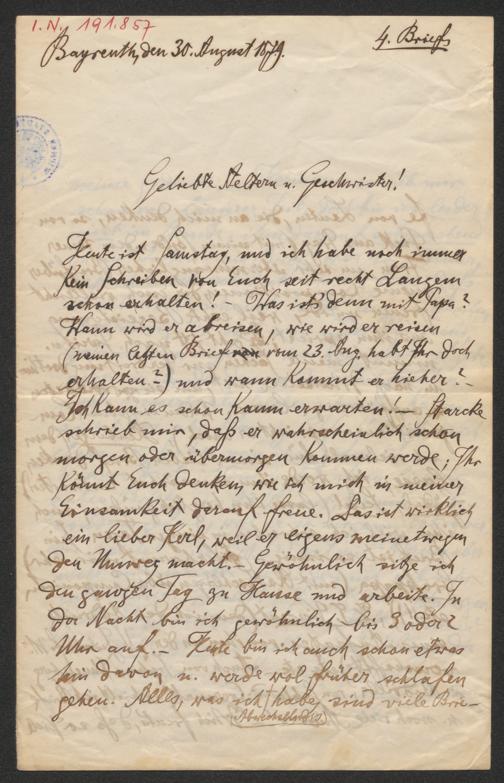 I.N. 191.857
4. Brief
Bayreuth, den 30. August 1879.
Geliebte Aeltern u. Geschwister!
Heute ist Samstag, und ich habe noch immer
kein Schreiben von Euch seit recht Langem
schon erhalten! – Was ist's denn mit Papa?
Wann wird er abreisen, wie wird er reisen
(meinen letzten Brief vom 23. Aug. habt Ihr doch
erhalten?) und wann kommt er hieher? –
Ich kann es schon kaum erwarten! – Starcke
schrieb mir, daß er wahrscheinlich schon
morgen oder übermorgen kommen werde; Ihr
könnt Euch denken, wie ich mich in meiner
Einsamkeit darauf freue. Das ist wirklich
ein lieber Kerl, weil er eigens meinetwegen
den Umweg macht. – Gewöhnlich sitze ich
den ganzen Tag zu Hause und arbeite. In
der Nacht bin ich gewöhnlich bis 3 oder 2
Uhr auf. – Heute bin ich auch schon etwas
hin davon u. werde wol früher schlafen
gehen. Alles, was ich habe, sind viele Brie-